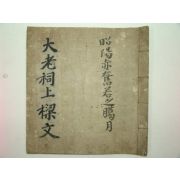 昭陽赤奮若之暢月
大老祠上樑文